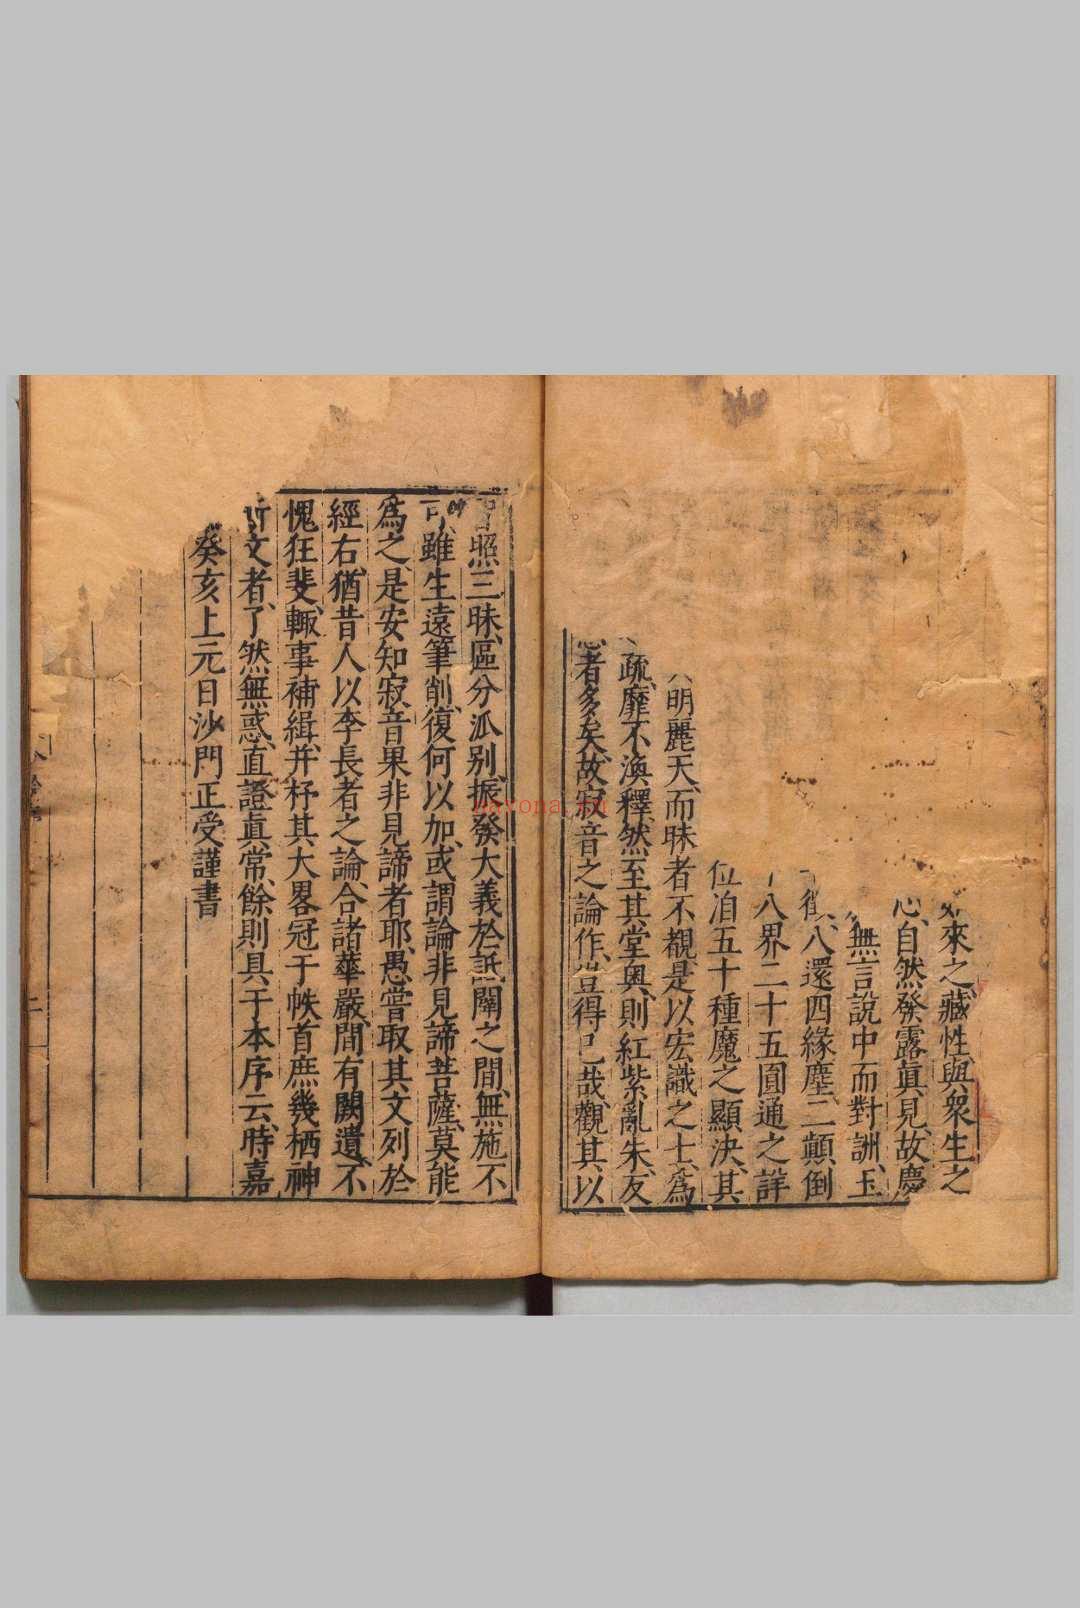 來之藏性與衆生之
心、自然發露眞見、故慶
無言說中而對訓、玉
八還四緣塵、二顛倒
八界二十五圓通之詳
位洎五十種魔之顯決、其
明麗天、而昧者不覩、是以宏識之士、爲
疏、靡不渙釋、然至其堂奥、則紅紫亂朱、友
者多矣、故寂音之論作、豈得已哉、觀其以
照三昧、區分派别、振發大義於詆闡之間、無施不
可、雖生遠筆削、復何以加、或謂論非見諦菩薩、莫能
爲之、是安知寂音果非見諦者耶、愚嘗取其文列於
經右、猶昔人以李長者之論、合諸華嚴、間有闕遺、不
愧狂斐、輙事補緝、并杼其大畧冠于帙首、庶幾栖神
斯文者、了然無惑、直證眞常、餘則具于本序云、時嘉
癸亥上元日沙門正受謹書
二